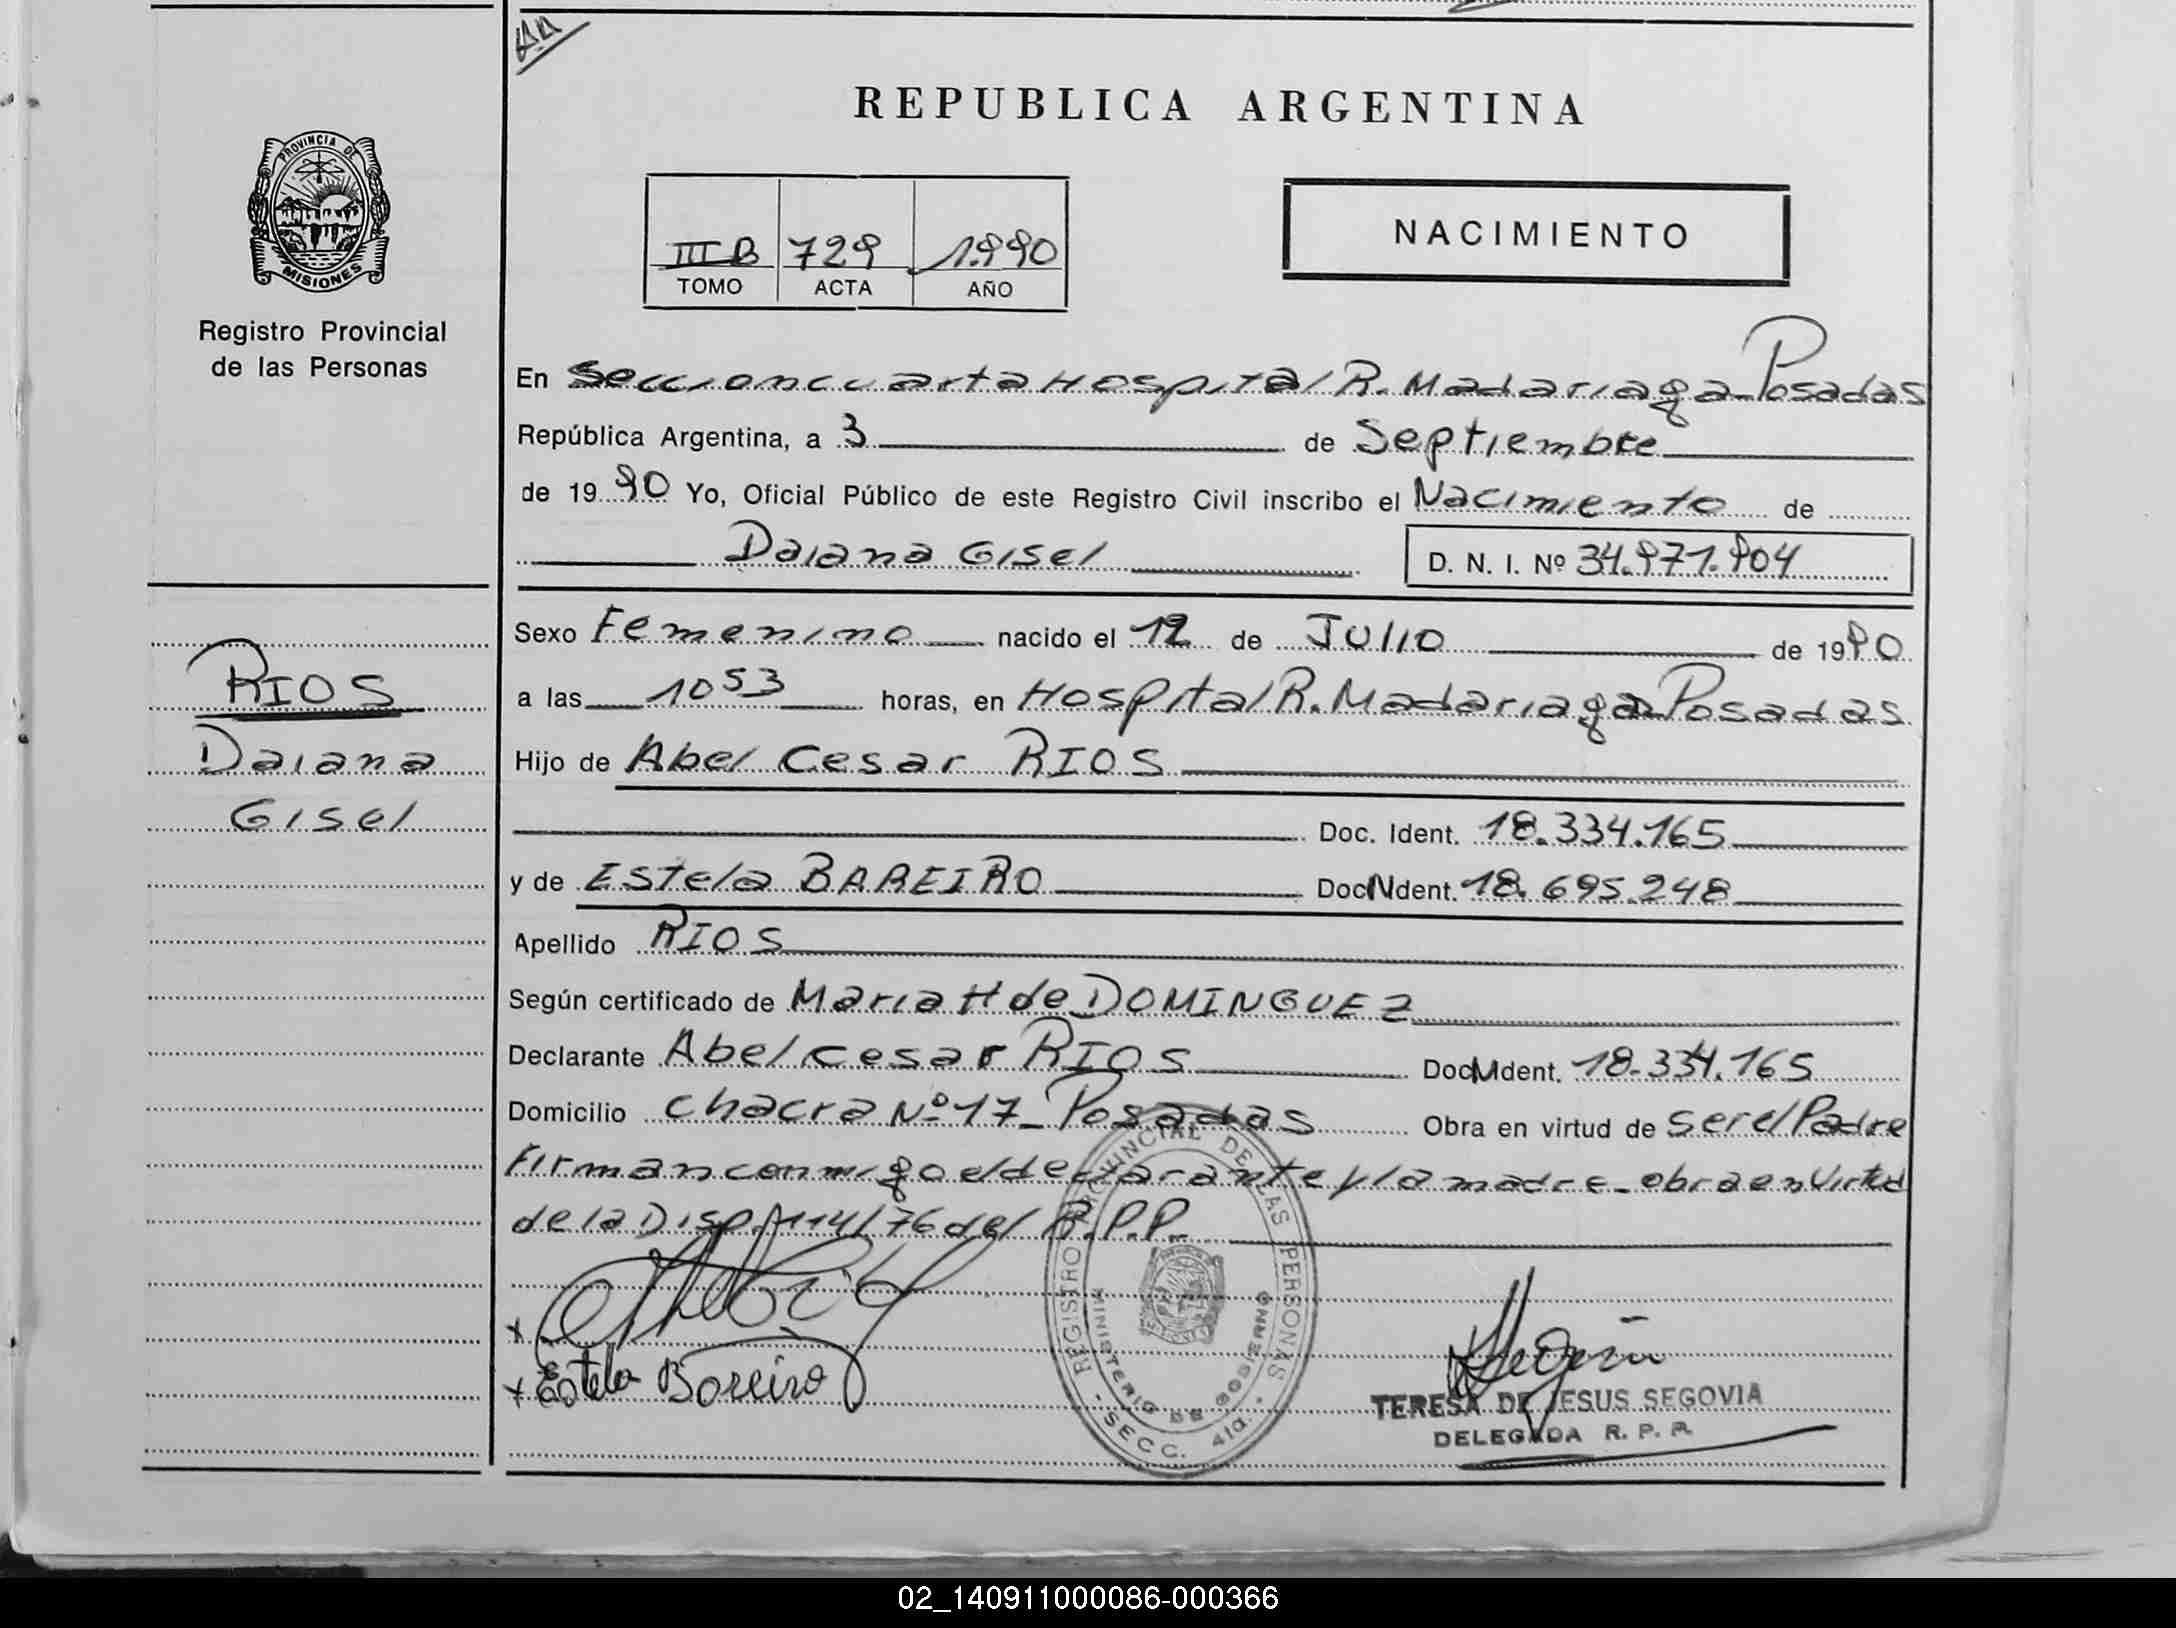 AA
REPUBLICA ARGENTINA
PROVINCIA DE
MISIONES
Registro Provincial
de las Personas
III B 729 1.990
TOMO ACTA AÑO
NACIMIENTO
En Seccion cuarta Hospital R. Madariaga - Posadas
República Argentina, a 3 de Septiembre
de 19 90 Yo, Oficial Público de este Registro Civil inscribo el Nacimiento de
Daiana Gisel
D. N. I. Nº 34.971.904
Sexo Femenino nacido el 12 de Julio de 19 90
a las 10 53 horas, en Hospital R. Madariaga Posadas
Hijo de Abel Cesar RIOS
Doc. Ident. 18.334.165
y de Estela BAREIRO Doc N Ident. 18.695.248
Apellido RIOS
Según certificado de Maria H de DOMINGUEZ
Declarante Abel Cesar RIOS Doc N Ident. 18.334.165
Domicilio chacra Nº 17 - Posadas Obra en virtud de ser el Padre
Firman conmigo el declarante y la madre - obra en virtud
de la Disp. 114/76 del R.P.P.
RIOS
Daiana
Gisel
x
x Estela Boreiro
REGISTRO PROVINCIAL DE LAS PERSONAS
MINISTERIO DE GOBIERNO
- SECC. 4ta. -
MISIONES
TERESA DE JESUS SEGOVIA
DELEGADA R. P. P.
02_140911000086-000366